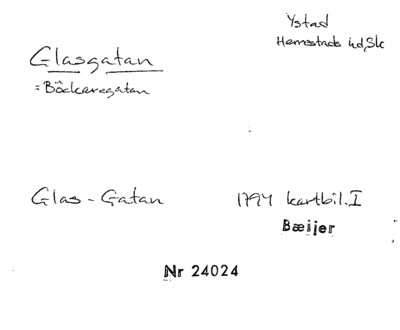 Ystad
Herrestads hd, Sk
Glasgatan
= Böckaregatan
Glas-Gatan 1794 kartbil. I
Bæijer
Nr 24024